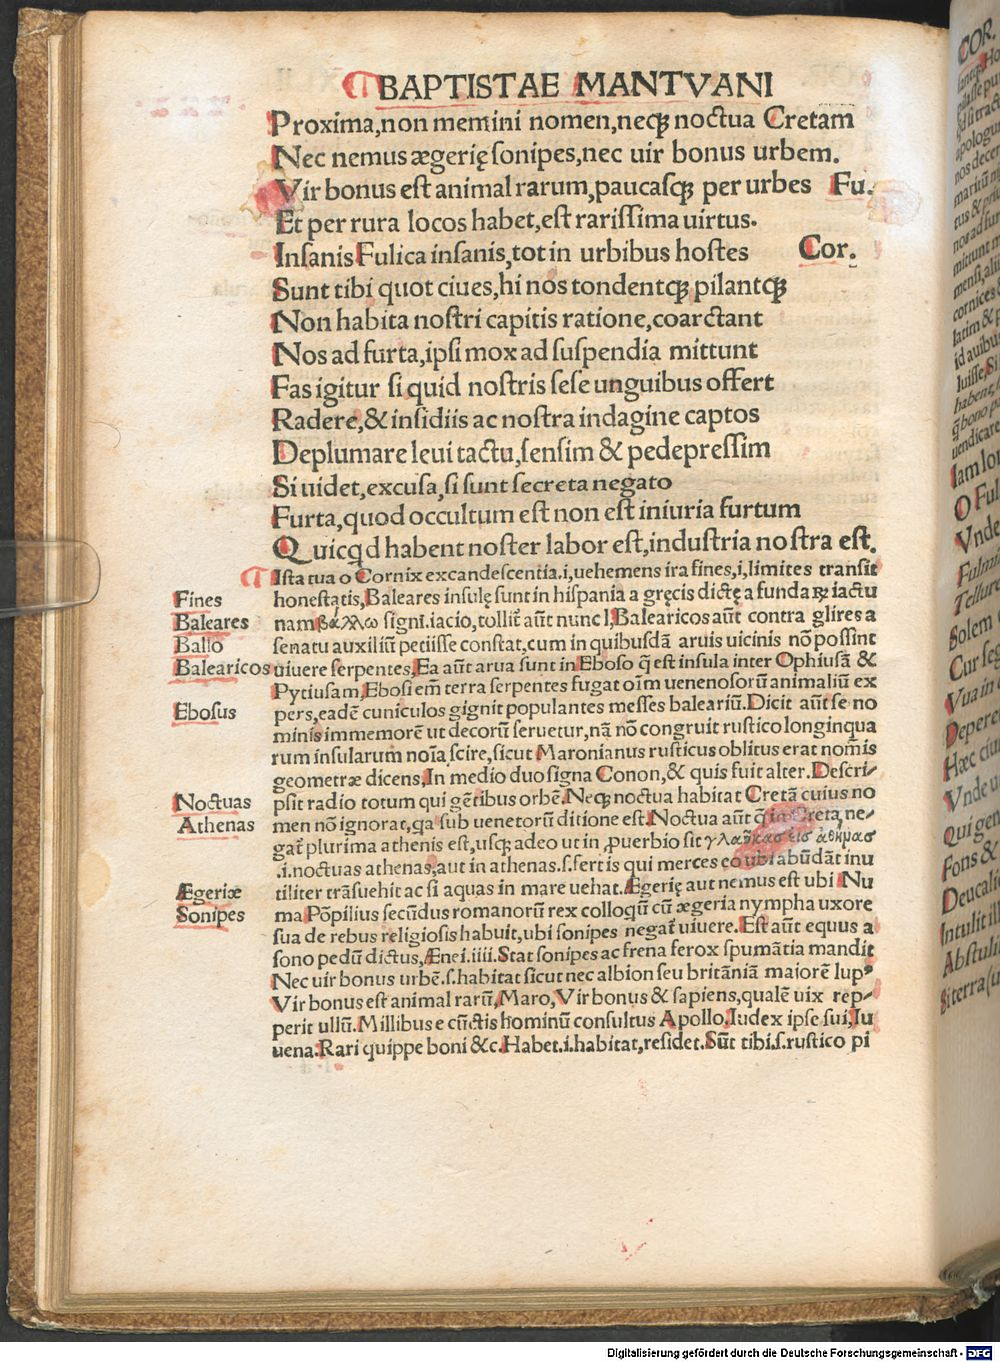 BAPTISTAE MANTVANI
Proxima,non memini nomen,neqꝫ noctua Cretam
Nec nemus ægerię sonipes,nec uir bonus urbem.
Vir bonus est animal rarum,paucasqꝫ per urbes Fu.
Et per rura locos habet,est rarissima uirtus.
Insanis Fulica insanis,tot in urbibus hostes Cor.
Sunt tibi quot ciues,hi nos tondentqꝫ pilantqꝫ
Non habita nostri capitis ratione,coarctant
Nos ad furta,ipsi mox ad suspendia mittunt
Fas igitur si quid nostris sese unguibus offert
Radere,& insidiis ac nostra indagine captos
Deplumare leui tactu,sensim & pedepressim
Si uidet,excusa,si sunt secreta negato
Furta,quod occultum est non est iniuria furtum
Quicqd habent noster labor est,industria nostra est.
Ista tua o Cornix excandescentia.i,uehemens ira fines,i,limites transit
honestatis,Baleares insulę sunt in hispania a gręcis dictę a fundaꝝ iactu
nam βάλλω signi.iacio,tollit̃ aũt nunc l,Balearicos aũt contra glires a
senatu auxiliũ petiisse constat,cum in quibusdã aruis uicinis nõ possint
uiuere serpentes,Ea aũt arua sunt in Eboso q̃ est insula inter Ophiusã &
Pytiusam,Ebosi em̃ terra serpentes fugat oĩm uenenosorũ animaliũ ex
pers,eadẽ cuniculos gignit populantes messes baleariũ.Dicit aũt se no
minis immemorẽ ut decorũ seruetur,nã nõ congruit rustico longinqua
rum insularum noĩa scire,sicut Maronianus rusticus oblitus erat nom̃is
geometræ dicens,In medio duo signa Conon,& quis fuit alter.Descri-
psit radio totum qui gẽtibus orbẽ.Neqꝫ noctua habitat Cretã cuius no
men nõ ignorat,qa sub uenetorũ ditione est.Noctua aũt q̃ in Creta ne-
gat̃ plurima athenis est,usqꝫ adeo ut in ꝓuerbio sit γλαῦκασ εἰσ ἀθήνασ
.i.noctuas athenas,aut in athenas.s.fertis qui merces eo ubi abũdãt inu
tiliter trãsuehit ac si aquas in mare uehat.Ægerię aut nemus est ubi Nu
ma Põpilius secũdus romanorũ rex colloqũ cũ ægeria nympha uxore
sua de rebus religiosis habuit,ubi sonipes negat̃ uiuere.Est aũt equus a
sono pedũ dictus,Ænei.iiii.Stat sonipes ac frena ferox spumãtia mandit
Nec uir bonus urbẽ.s.habitat sicut nec albion seu britãniã maiorẽ lupꝰ
Vir bonus est animal rarũ,Maro,Vir bonus & sapiens,qualẽ uix rep-
perit ullũ.Millibus e cũctis hominũ consultus Apollo,Iudex ipse sui,Iu
uena.Rari quippe boni &c.Habet.i.habitat,residet.Sũt tibi.s.rustico pi
Fines
Baleares
Ballo
Balearicos
Ebosus
Noctuas
Athenas
Ægeriæ
Sonipes
COR.
Iam lo
O Ful
Vnde
Solem
Cur seg
Vua in
Depere
Hæc ciu
Vnde u
Qui gen
Fons &
Deucali
Intulit ill
Abstuli
Si terra (u
Digitalisierung gefördert durch die Deutsche Forschungsgemeinschaft - DFG